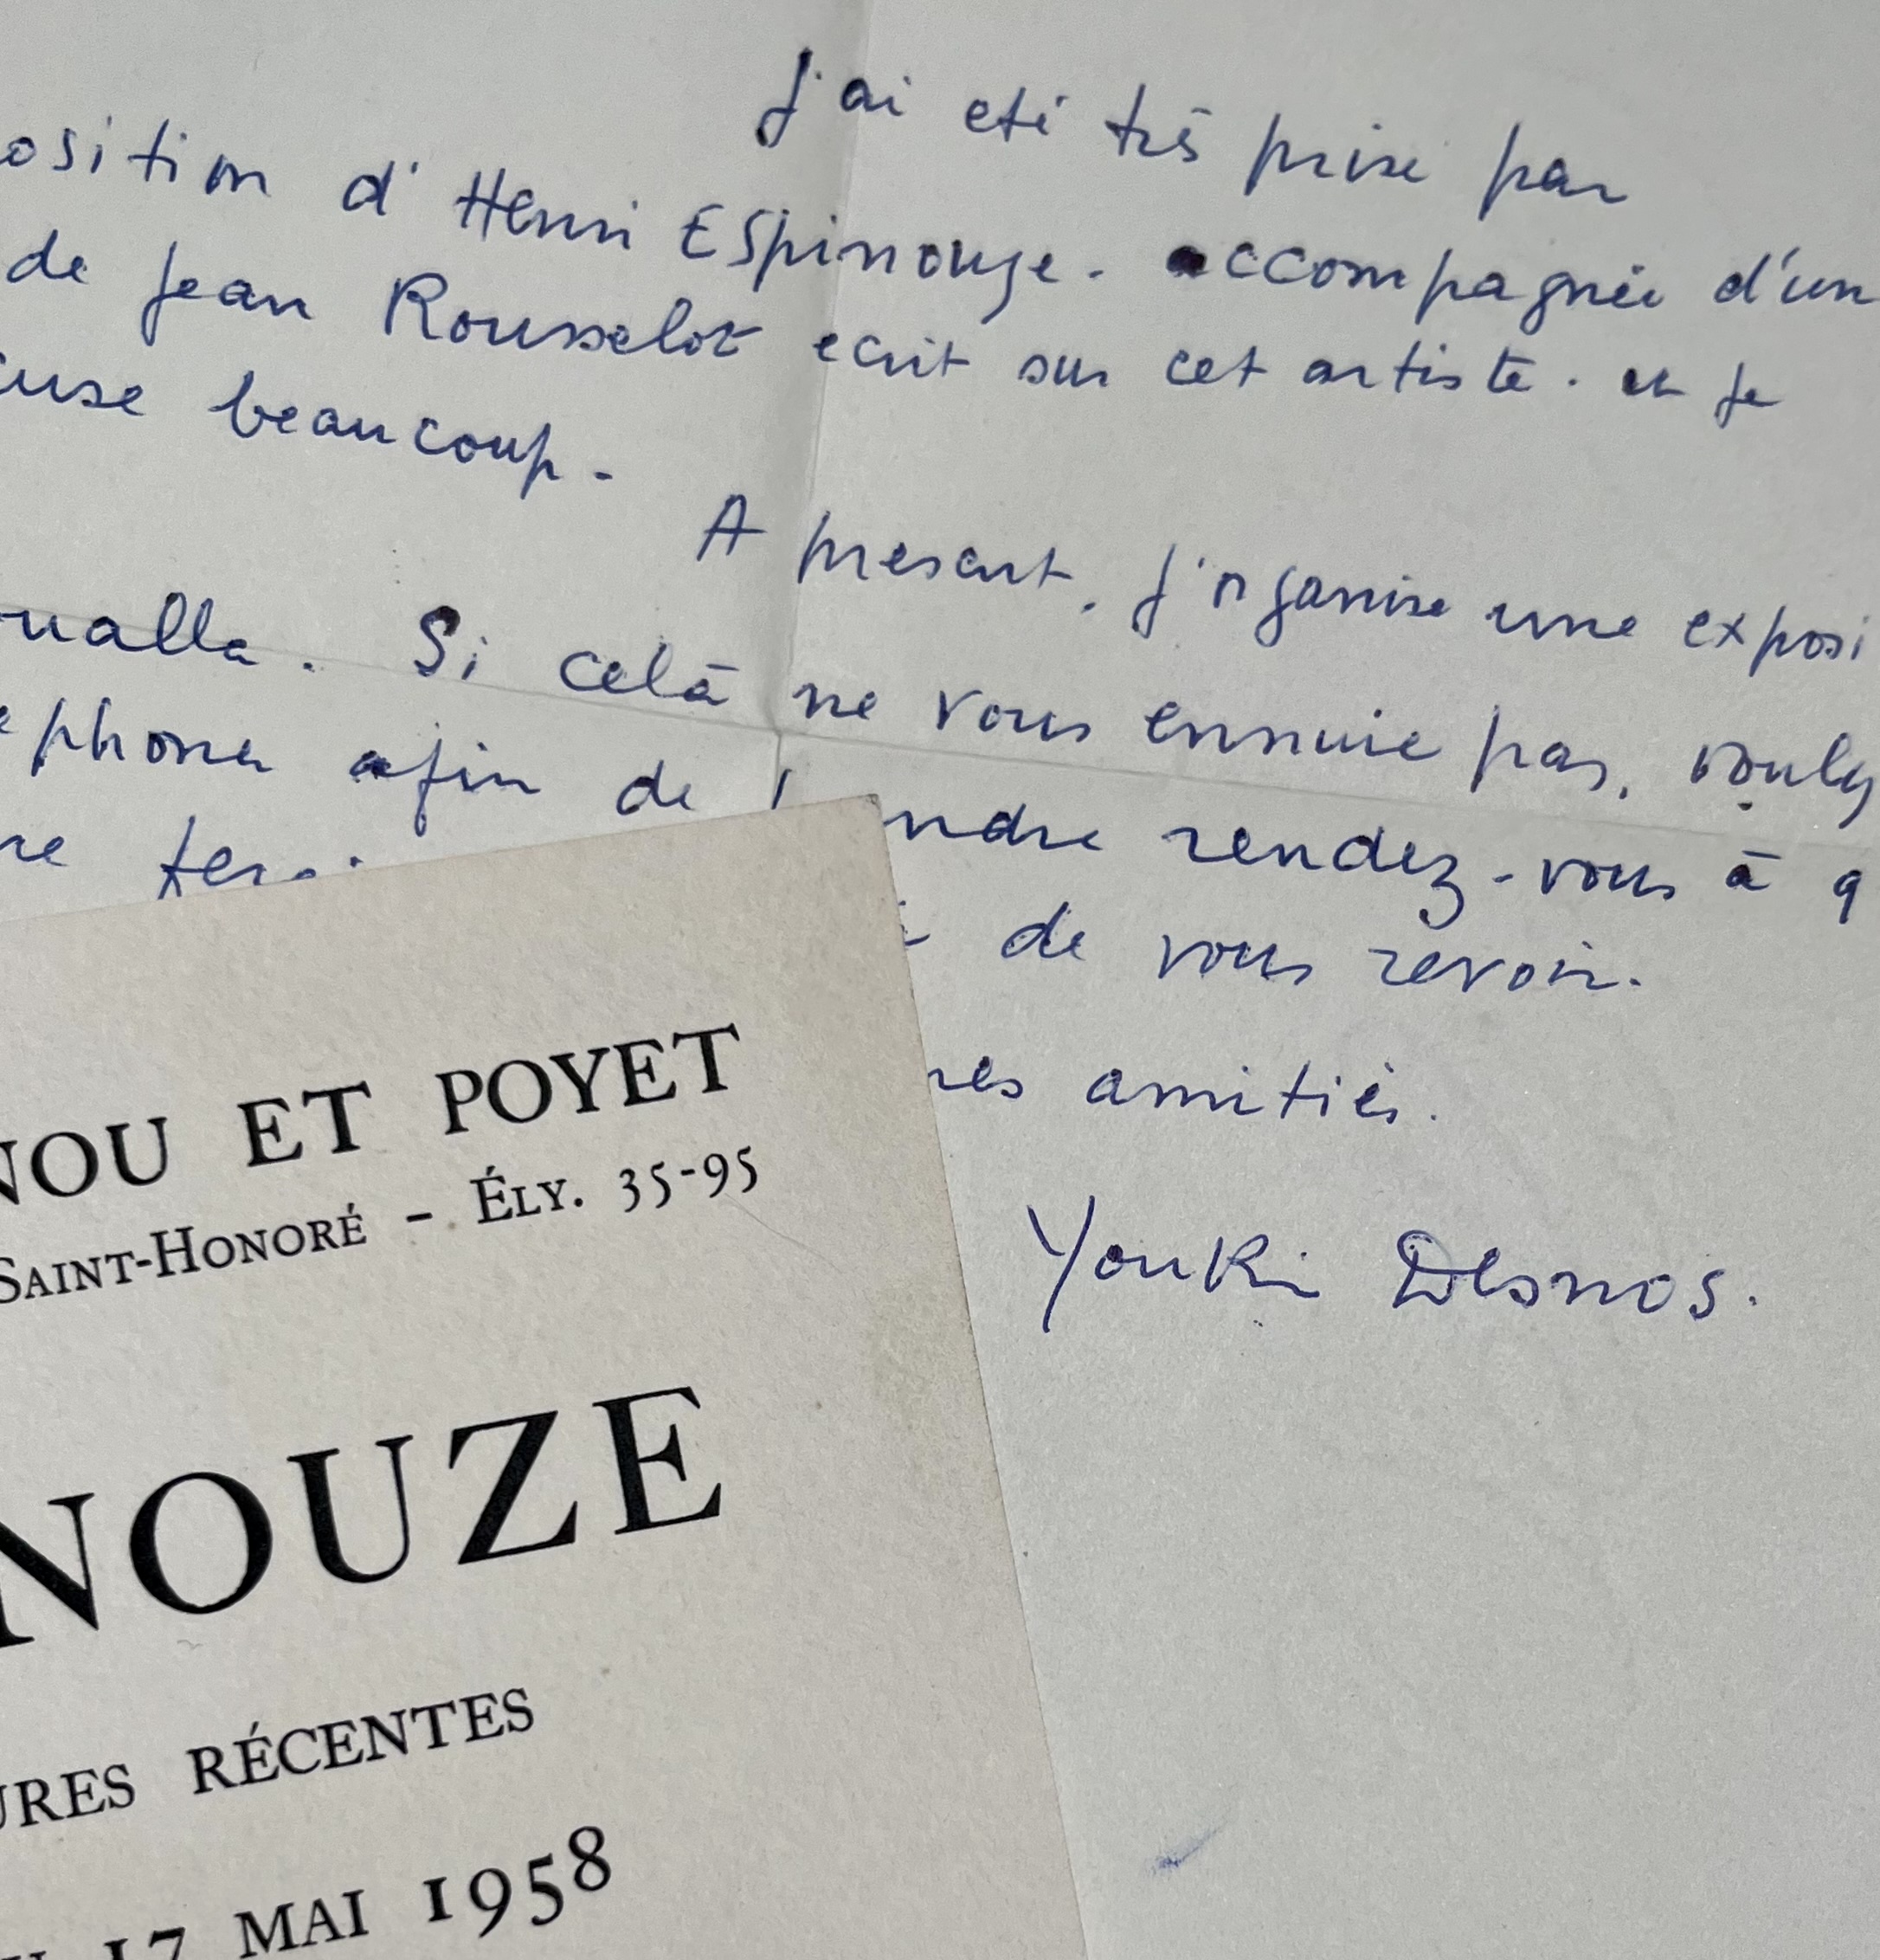 J'ai eté très prise par
osition d'Henri ESpinouze. accompagnée d'un
de Jean Rousselot ecrit sur cet artiste. et je
cuse beaucoup.
A present, j'organise une exposi
oualla. Si celà ne vous ennuie pas, voulez
ephoner afin de ndre rendez-vous à q
re
de vous revoir.
mes amitiés.
Youki Desnos.
NOU ET POYET
SAINT-HONORÉ – ÉLY. 35-95
NOUZE
URES RÉCENTES
17 MAI 1958